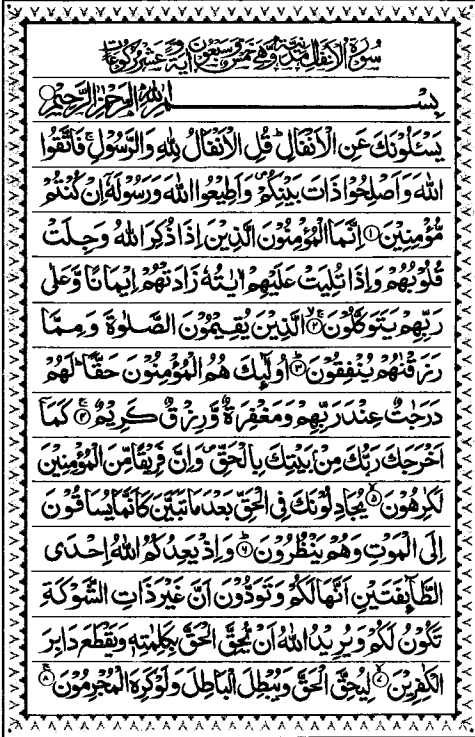 سُوْرَةُ الْاَنْفَالِ مَدَنِيَّةٌ وَّهِيَ خَمْسٌ وَّسَبْعُوْنَ اٰيَةً وَّعَشَرُ رُكُوْعَاتٍ
بِسْمِ اللّٰهِ الرَّحْمٰنِ الرَّحِيْمِ
يَسْـَٔلُوْنَكَ عَنِ الْاَنْفَالِ ؕ قُلِ الْاَنْفَالُ لِلّٰهِ وَالرَّسُوْلِ ۚ فَاتَّقُوا
اللّٰهَ وَاَصْلِحُوْا ذَاتَ بَيْنِكُمْ ۪ وَاَطِيْعُوا اللّٰهَ وَرَسُوْلَهٗۤ اِنْ كُنْتُمْ
مُّؤْمِنِيْنَ ۝۱ اِنَّمَا الْمُؤْمِنُوْنَ الَّذِيْنَ اِذَا ذُكِرَ اللّٰهُ وَجِلَتْ
قُلُوْبُهُمْ وَاِذَا تُلِيَتْ عَلَيْهِمْ اٰيٰتُهٗ زَادَتْهُمْ اِيْمَانًا وَّعَلٰى
رَبِّهِمْ يَتَوَكَّلُوْنَ ۝۲ الَّذِيْنَ يُقِيْمُوْنَ الصَّلٰوةَ وَمِمَّا
رَزَقْنٰهُمْ يُنْفِقُوْنَ ۝۳ اُولٰٓئِكَ هُمُ الْمُؤْمِنُوْنَ حَقًّا ؕ لَهُمْ
دَرَجٰتٌ عِنْدَ رَبِّهِمْ وَمَغْفِرَةٌ وَّرِزْقٌ كَرِيْمٌ ۝۴ كَمَاۤ
اَخْرَجَكَ رَبُّكَ مِنْۢ بَيْتِكَ بِالْحَقِّ ۪ وَاِنَّ فَرِيْقًا مِّنَ الْمُؤْمِنِيْنَ
لَكٰرِهُوْنَ ۝۵ يُجَادِلُوْنَكَ فِى الْحَقِّ بَعْدَمَا تَبَيَّنَ كَاَنَّمَا يُسَاقُوْنَ
اِلَى الْمَوْتِ وَهُمْ يَنْظُرُوْنَ ۝۶ وَاِذْ يَعِدُكُمُ اللّٰهُ اِحْدَى
الطَّآئِفَتَيْنِ اَنَّهَا لَكُمْ وَتَوَدُّوْنَ اَنَّ غَيْرَ ذَاتِ الشَّوْكَةِ
تَكُوْنُ لَكُمْ وَيُرِيْدُ اللّٰهُ اَنْ يُّحِقَّ الْحَقَّ بِكَلِمٰتِهٖ وَيَقْطَعَ دَابِرَ
الْكٰفِرِيْنَ ۝۷ لِيُحِقَّ الْحَقَّ وَيُبْطِلَ الْبَاطِلَ وَلَوْ كَرِهَ الْمُجْرِمُوْنَ ۝۸